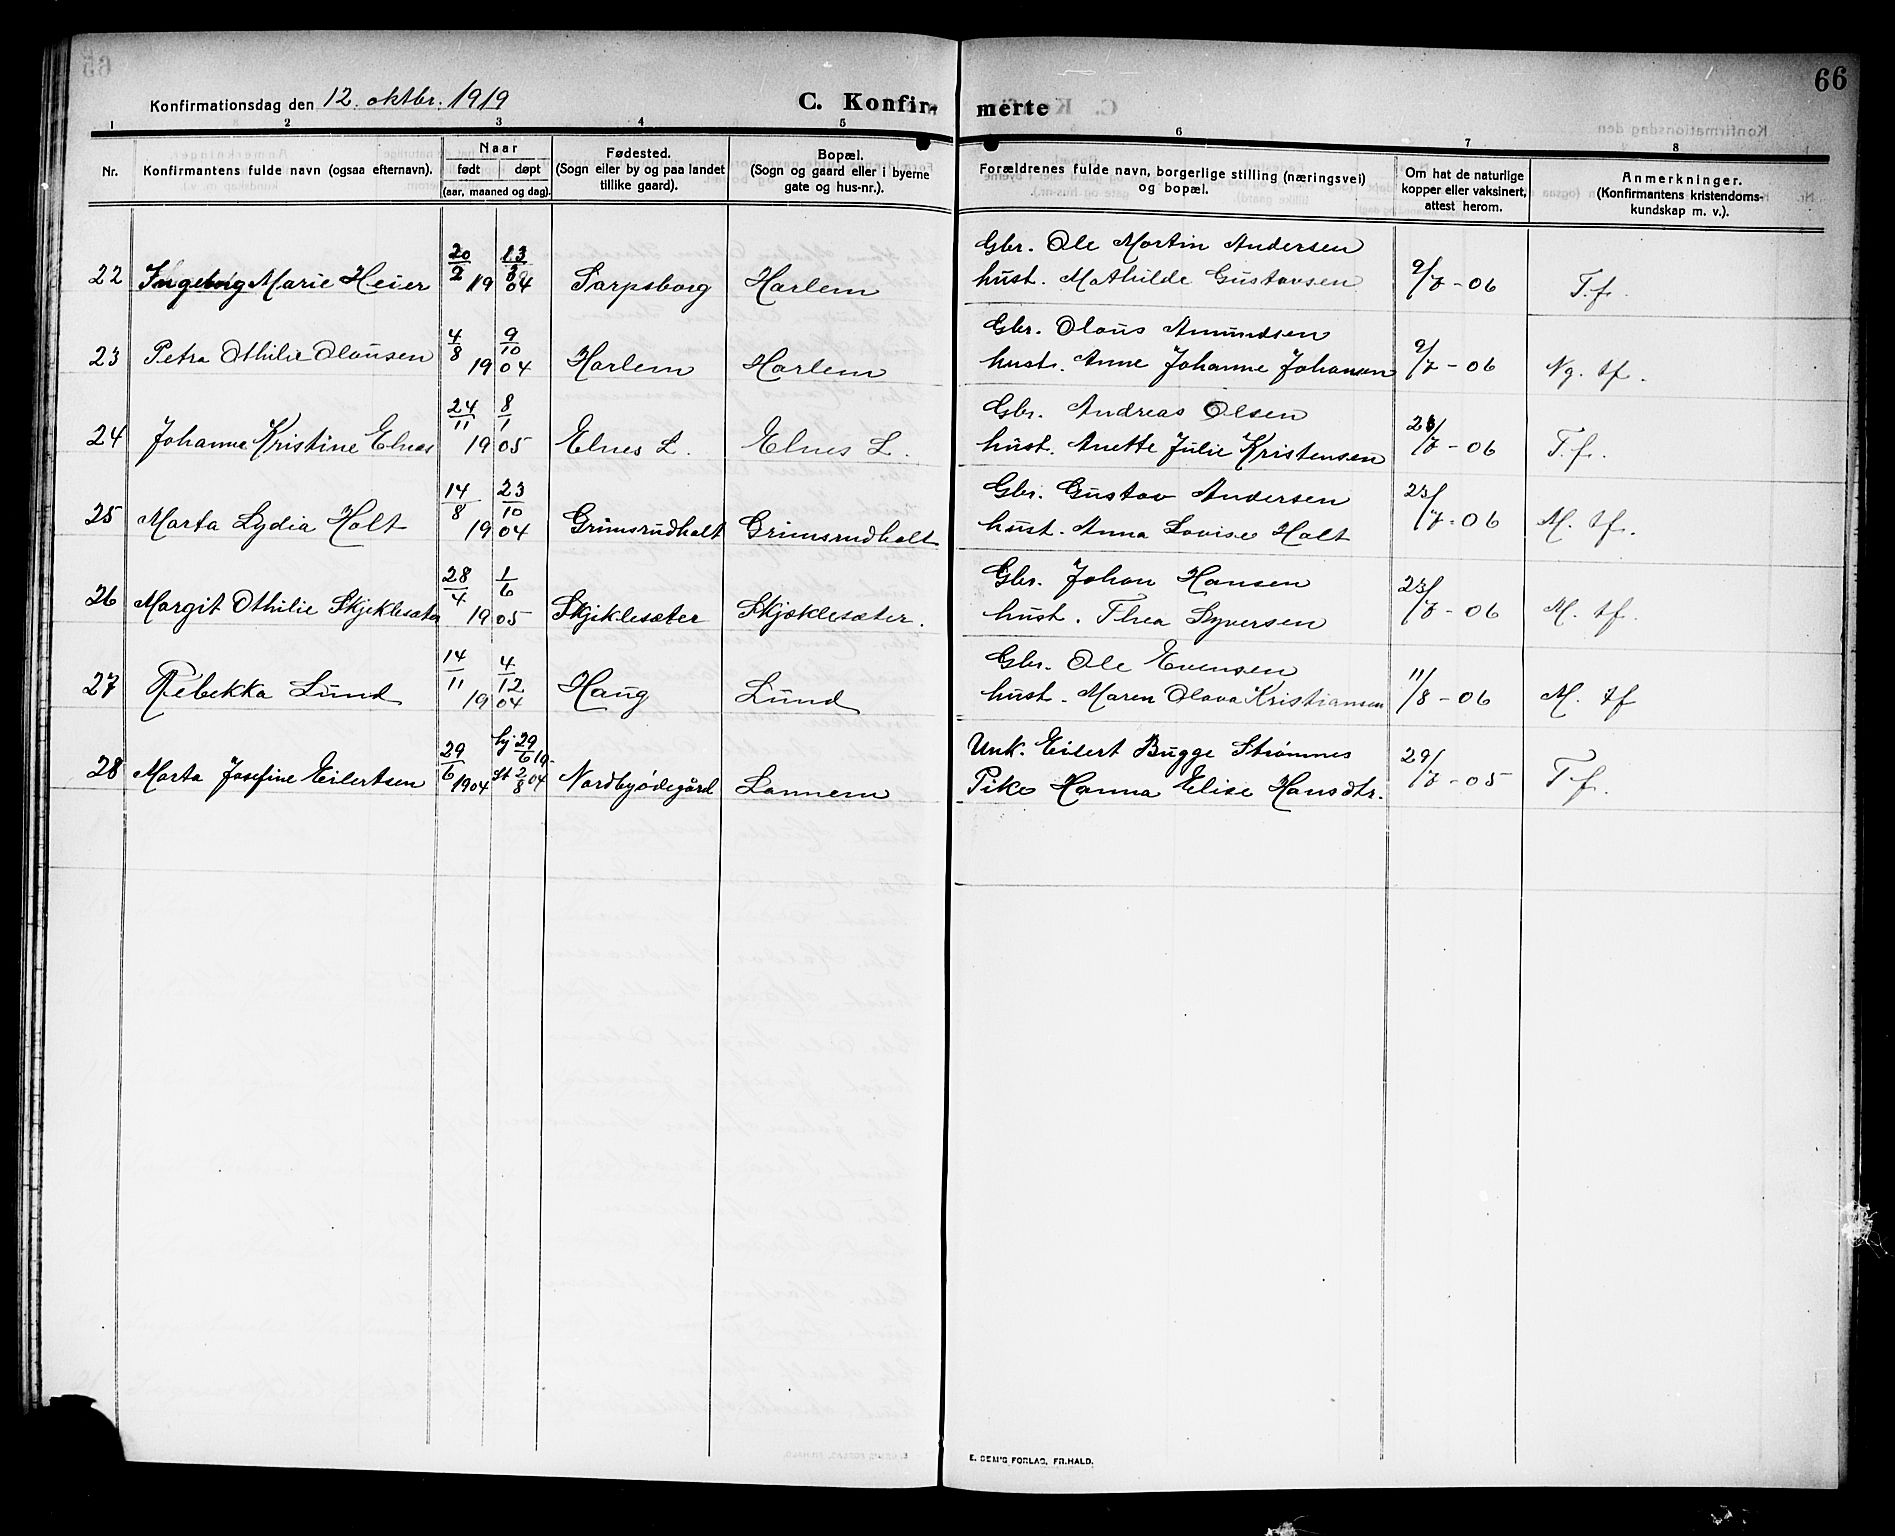 66
Konfirmationsdag den 12. oktbr. 1919
C. Konfirmerte
1 2 3 4 5 6 7 8
Nr. Konfirmantens fulde navn (ogsaa efternavn). Naar født døpt (aar, maaned og dag). Fødested. (Sogn eller by og paa landet tillike gaard). Bopæl. (Sogn og gaard eller i byerne gate og hus-nr.). Forældrenes fulde navn, borgerlige stilling (næringsvei) og bopæl. Om hat de naturlige kopper eller vaksinert, attest herom. Anmerkninger. (Konfirmantens kristendomskundskap m. v.).
Gbr. Ole Martin Andersen
22 Ingeborg Marie Heier 20/2 19 04 Sarpsborg Harlem hust. Mathilde Gustavsen 9/7 - 06 T.f.
Gbr. Olaus Amundsen
23 Petra Othilie Olausen 4/8 9/10 19 04 Harlem Harlem hust. Anne Johanne Johansen 9/7 - 06 Ng. tf.
Gbr. Andreas Olsen
24 Johanne Kristine Elnes 24/11 8/1 19 05 Elnes L. Elnes L. hust. Anette Julie Kristensen /7 - 06 T.f.
Gbr. Gustav Andersen
25 Marta Lydia Holt 14/8 23/10 19 04 Grimsrudholt Grimsrudholt hust. Anna Lovise Holt 23/7 - 06 M. tf.
Gbr. Johan Hansen
26 Margit Othilie Skjeklesæter 28/4 1/6 19 05 Skjeklesæter Skjeklesæter. hust. Thea Syversen 23/7 - 06 M. tf.
Gbr. Ole Evensen
27 Rebekka Lund 14/11 4/12 19 04 Haug Lund hust. Maren Olava Kristiansen 11/8 - 06 M. tf
Unk. Eilert Bugge Strømnes
28 Marta Josefine Eilertsen 29/6 1904 hj. 29/6 19- st 2/8 04 Nordbyødegård Lannem Pike Hanna Elise Hansdtr. 29/7 - 05 T.f.
E. SEM'S FORLAG, FR.HALD.